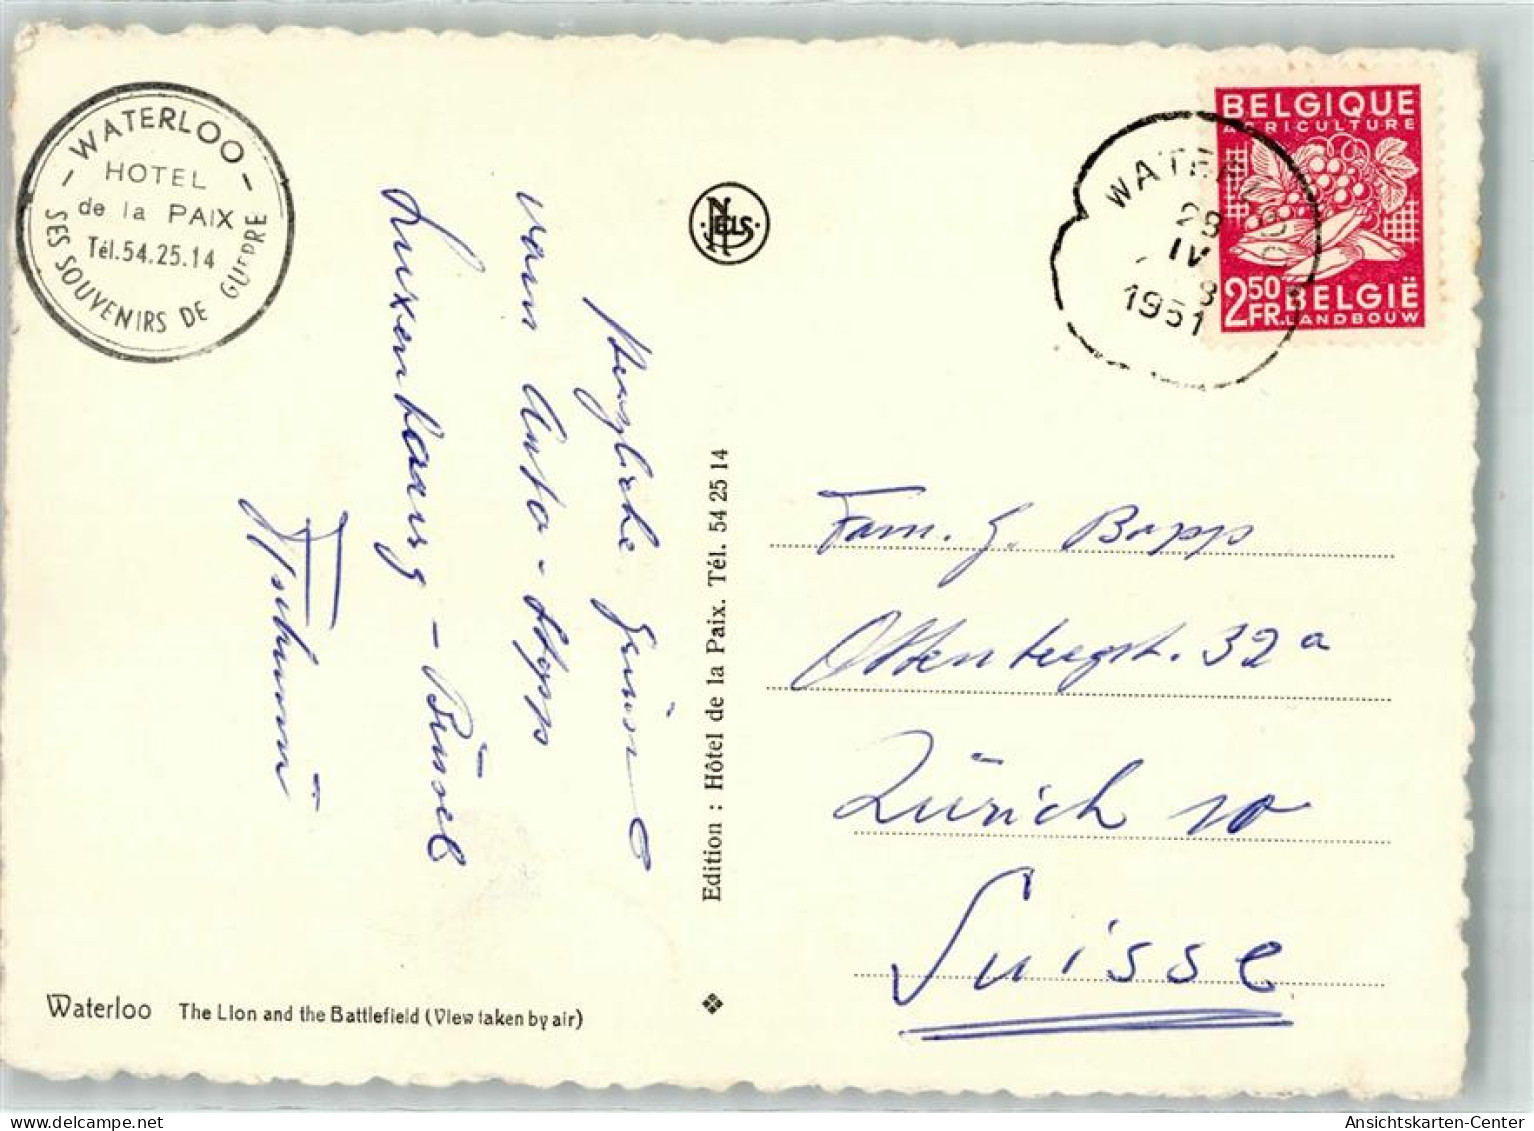 WATERLOO
HOTEL
de la PAIX
Tél.54.25.14
SES SOUVENIRS DE GUERRE
NELS
WATERLOO
28
IV
1951
BELGIQUE
AGRICULTURE
250 FR.
BELGIË
LANDBOUW
Herzliche Grüsse
vom Auto-Stopp
Luxembourg - Brüssel
Edition : Hôtel de la Paix. Tél. 54 25 14
Fam. G. Bopp
Ottenbergst. 32a
Zürich 10
Suisse
Waterloo The Lion and the Battlefield (View taken by air)
Ansichtskarten-Center